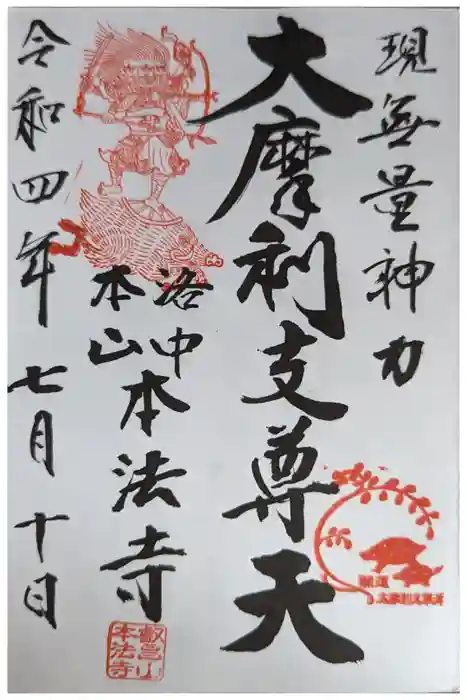 現無量神力
大摩利支尊天
洛中
本山
本法寺
令和四年七月十日
叡昌山
本法寺
開運